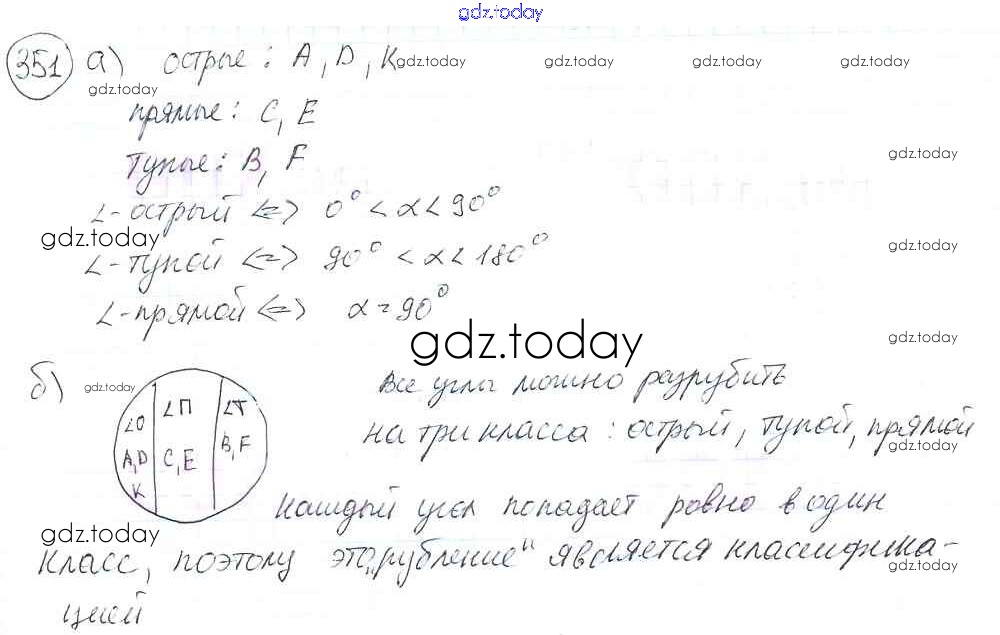 gdz.today
351 а) острые: A, D, K gdz.today gdz.today gdz.today gdz.today
gdz.today
прямые: C, E
gdz.today
тупые: B, F
∠-острый <=> 0° < α < 90°
gdz.today gdz.today
∠-тупой <=> 90° < α < 180°
∠-прямой <=> α = 90°
gdz.today gdz.today
б) gdz.today
∠О ∠П ∠Т
A, D C, E B, F
K
Все углы можно разрубить
на три класса: острый, тупой, прямой
gdz.today
Каждый угол попадает ровно в один
gdz.today
класс, поэтому это „рубление" является классифика-
gdz.today
цией